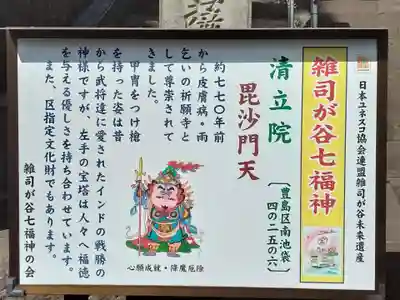 日本ユネスコ協会連盟雑司が谷未来遺産
雑司が谷七福神
清立院
〔豊島区南池袋
四の二五の六〕
毘沙門天
約七七〇年前
から皮膚病・雨
乞いの祈願寺と
して尊崇されて
きました。
甲冑をつけ槍
を持った姿は昔
から武将達に愛されたインドの戦勝の
神様ですが、左手の宝塔は人々へ福徳
を与える優しさを持ち合わせています。
また、区指定文化財でもあります。
雑司が谷七福神の会
心願成就・降魔危険